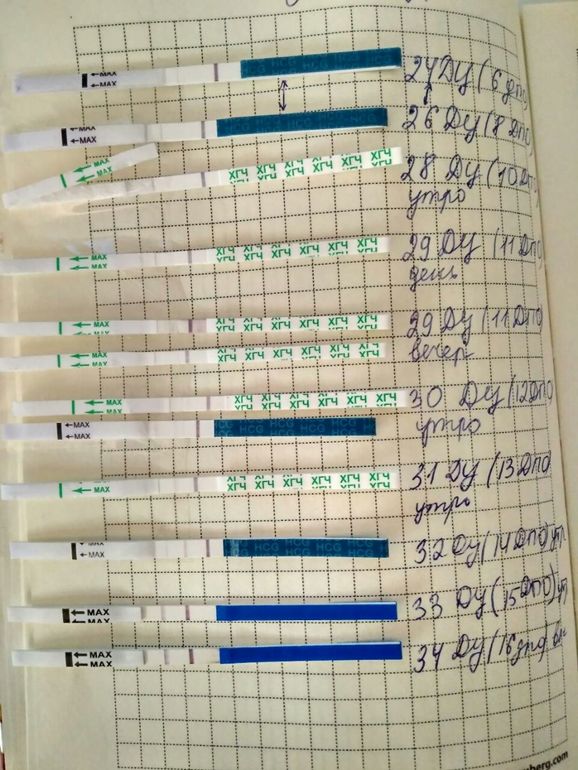 MAX
MAX
HCG HCG HCG
HCG
24 ДЦ (6 дпо
MAX
MAX
HCG
26 ДЦ (8 ДПО
MAX
MAX
ХГЧ ХГЧ ХГЧ ХГЧ ХГЧ ХГЧ
28 ДЦ (10 ДП
утро
MAX
MAX
ХГЧ ХГЧ ХГЧ ХГЧ ХГЧ ХГЧ
29 ДЦ (11 ДПО
день
MAX
ХГЧ ХГЧ ХГЧ ХГЧ ХГЧ ХГЧ
29 ДЦ (11 ДПО
вечер
MAX
MAX
ХГЧ ХГЧ ХГЧ ХГЧ ХГЧ ХГЧ
MAX
ХГЧ ХГЧ ХГЧ ХГЧ ХГЧ ХГЧ
30 ДЦ (12 ДПО
утро
MAX
MAX
HCG HCG HCG
MAX
ХГЧ ХГЧ ХГЧ ХГЧ ХГЧ ХГЧ
31 ДЦ (13 ДПО
утро
MAX
MAX
HCG HCG HCG
32 ДЦ (14 ДПО) ут
MAX
33 ДЦ (15 ДПО) ут
MAX
MAX
34 ДЦ (16
berg.com